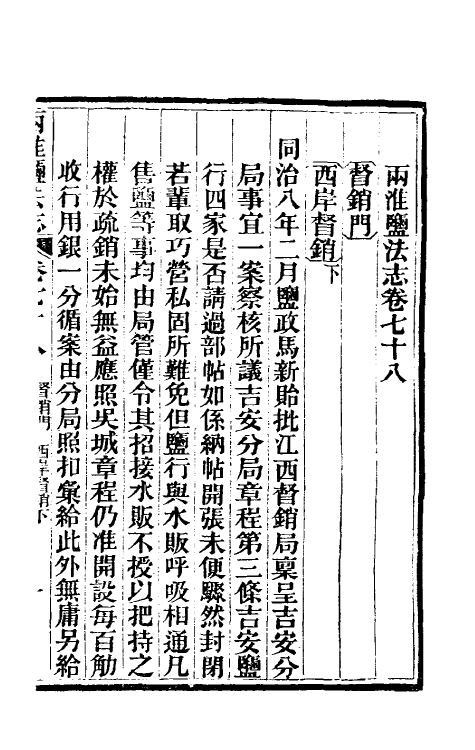 兩淮鹽法志卷七十八
督銷門
西岸督銷下
同治八年二月鹽政馬新貽批江西督銷局稟呈吉安分
局事宜一案察核所議吉安分局章程第三條吉安鹽
行四家是否請過部帖如係納帖開張未便驟然封閉
若輩取巧營私固所難免但鹽行與水販呼吸相通凡
售鹽等事均由局管僅令其招接水販不授以把持之
權於疏銷未始無益應照吳城章程仍准開設每百觔
收行用銀一分循案由分局照扣彙給此外無庸另給
兩淮鹽法志 卷七十八 督銷門 西岸督銷下 一